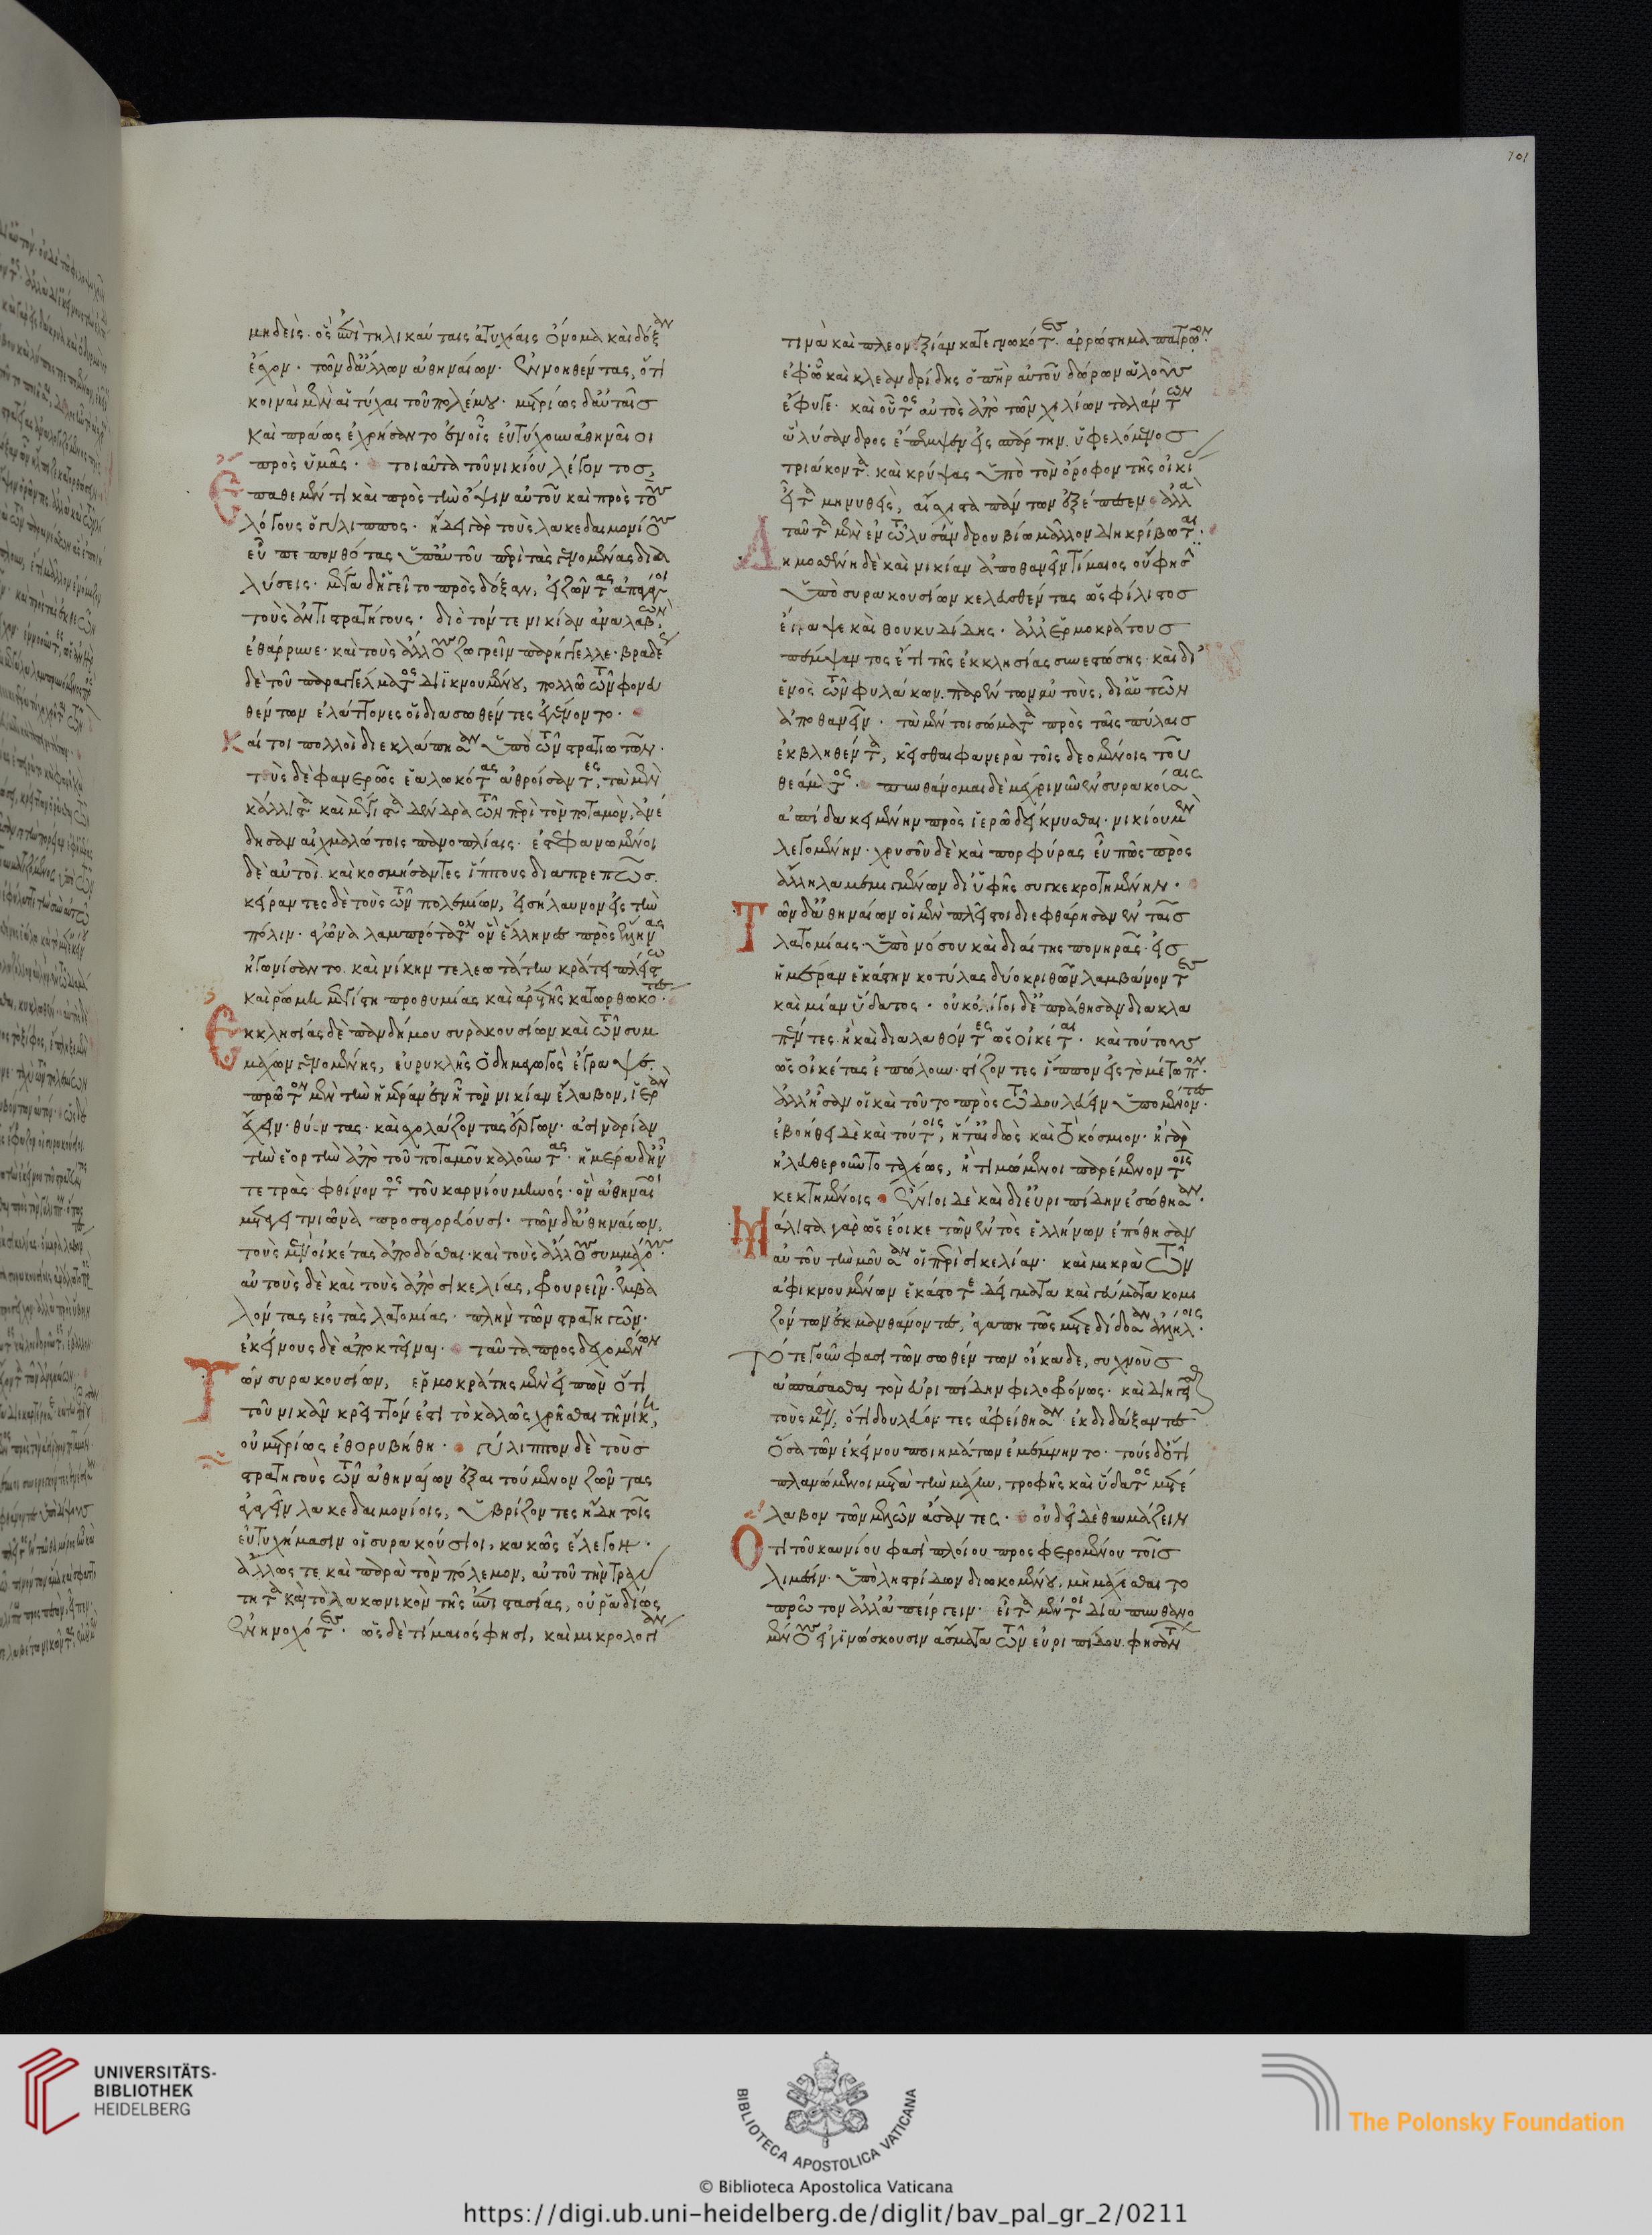 μηδεὶς· ὃς ἐπὶ τηλικαύταις ἀτυχίαις ὄνομα καὶ δόξαν
ἔσχον· τῶν δ᾽ ἄλλων ἀθηναίων· ἐννοηθέντας, ὅτι
κοιναὶ μὲν αἱ τύχαι τοῦ πολέμου· μετρίως δ᾽ αὐταῖς
καὶ πράως ἐχρήσαντο ἐν οἷς εὐτύχουν ἀθηναῖοι
πρὸς ὑμᾶς· τοιαῦτα τοῦ νικίου λέγοντος,
Ἔπαθε μέν τι καὶ πρὸς τὴν ὄψιν αὐτοῦ καὶ πρὸς τοὺς
λόγους ὁ γύλιππος· ἤδει γὰρ τοὺς λακεδαιμονίους
εὖ πεπονθότας ὑπ᾽ αὐτοῦ περὶ τὰς γενομένας δια
λύσεις· μέγα δ᾽ ἡγεῖτο πρὸς δόξαν, εἰ ζῶντας ἀπαγάγοι
τοὺς ἀντιστρατήγους· διὸ τόν τε νικίαν ἀναλαβὼν
ἐθάρρυνε· καὶ τοὺς ἄλλους ζωγρεῖν παρήγγελλε· βραδέως
δὲ τοῦ παραγγέλματος διϊκνουμένου, πολλῷ τῶν φονευ
θέντων ἐλάττονες οἱ διασωθέντες ἐγένοντο·
Καίτοι πολλοὶ διεκλάπησαν ὑπὸ τῶν στρατιωτῶν·
τοὺς δὲ φανερῶς ἑαλωκότας ἀθροίσαντες, τὰ μὲν
κάλλιστα καὶ μέγιστα δένδρα τῶν περὶ τὸν ποταμὸν, ἀνέ
δησαν αἰχμαλώτοις πανοπλίαις· ἐστεφανωμένοι
δὲ αὐτοὶ καὶ κοσμήσαντες ἵππους διαπρεπῶς·
κείραντες δὲ τοὺς τῶν πολεμίων, εἰσήλαυνον εἰς τὴν
πόλιν· ἀγῶνα λαμπρότατον ὃν ἕλληνες πρὸς ἕλληνας
ἠγωνίσαντο· καὶ νίκην τελεωτάτην κράτει πλείστῳ
καὶ ῥώμῃ μεγίστῃ προθυμίας καὶ ἀρετῆς κατωρθωκότες·
Ἐκκλησίας δὲ πανδήμου συρακουσίων καὶ τῶν συμ
μάχων γενομένης, εὐρυκλῆς ὁ δημαγωγὸς ἔγραψε·
πρῶτον μὲν τὴν ἡμέραν ἐν ᾗ τὸν νικίαν ἔλαβον, ἱερὰν
ἔχειν· θύοντας· καὶ σχολάζοντας ἔργων· ἀσιναρίαν
τὴν ἑορτὴν ἀπὸ τοῦ ποταμοῦ καλοῦντας· ἡμέρα δ᾽ ἦν
τετρὰς φθίνοντος τοῦ καρνείου μηνός· ὃν ἀθηναῖοι
μεταγειτνιῶνα προσαγορεύουσι· τῶν δ᾽ ἀθηναίων,
τοὺς μὲν οἰκέτας ἀποδόσθαι· καὶ τοὺς ἄλλους συμμάχους·
αὐτοὺς δὲ καὶ τοὺς ἀπὸ σικελίας, φρουρεῖν· ἐμβα
λόντας εἰς τὰς λατομίας· πλὴν τῶν στρατηγῶν·
ἐκείνους δὲ ἀποκτεῖναι· ταῦτα προσδεχομένων
Τῶν συρακουσίων, ἑρμοκράτης μὲν εἰπὼν ὅτι
τοῦ νικᾶν κρεῖττόν ἐστι τὸ καλῶς χρῆσθαι τῇ νίκῃ,
οὐ μετρίως ἐθορυβήθη· γύλιππον δὲ τοὺς
στρατηγοὺς τῶν ἀθηναίων ἐξαιτούμενον ζῶντας
ἀγαγεῖν λακεδαιμονίοις, ὑβρίζοντες ἤδη τοῖς
εὐτυχήμασιν οἱ συρακούσιοι, κακῶς ἔλεγον·
ἄλλως τε καὶ παρὰ τὸν πόλεμον, αὐτοῦ τὴν τραχύ
τητα καὶ τὸ λακωνικὸν τῆς ἐπιστασίας, οὐ ῥᾳδίως
ἐνηνοχότες· ὡς δὲ τίμαιός φησι, καὶ μικρολογίαν
τινὰ καὶ πλεονεξίαν κατεγνωκότες· ἀρρώστημα πατρῷον·
ἐφ᾽ ᾧ καὶ κλεανδρίδης ὁ πατὴρ αὐτοῦ δώρων ἁλοὺς
ἔφυγε· καὶ οὗτος αὐτὸς ἀπὸ τῶν χιλίων ταλάντων
ὧν λύσανδρος ἔπεμψεν εἰς σπάρτην, ὑφελόμενος
τριάκοντα· καὶ κρύψας ὑπὸ τὸν ὄροφον τῆς οἰκίας
εἶτα μηνυθεὶς, αἴσχιστα πάντων ἐξέπεσεν· ἀλλὰ
ταῦτα μὲν ἐν τῷ λυσάνδρου βίῳ μᾶλλον διηκρίβωται·
Δημοσθένη δὲ καὶ νικίαν ἀποθανεῖν τίμαιος οὔ φησιν
ὑπὸ συρακουσίων κελευσθέντας ὡς φίλιστος
ἔγραψε καὶ θουκυδίδης· ἀλλ᾽ ἑρμοκράτους
πέμψαντος ἔτι τῆς ἐκκλησίας συνεστώσης· καὶ δι᾽
ἑνὸς τῶν φυλάκων παρέντων αὐτοὺς, δι᾽ αὑτῶν
ἀποθανεῖν· τὰ μέντοι σώματα πρὸς ταῖς πύλαις
ἐκβληθέντα, κεῖσθαι φανερὰ τοῖς δεομένοις τοῦ
θεάματος· πυνθάνομαι δὲ μέχρι νῦν ἐν συρακούσαις
ἀσπίδα κειμένην πρὸς ἱερῷ δείκνυσθαι· νικίου μὲν
λεγομένην· χρυσοῦ δὲ καὶ πορφύρας εὖ πως πρὸς
ἄλληλα μεμιγμένων δι᾽ ὑφῆς συγκεκροτημένην·
Τῶν δ᾽ ἀθηναίων οἱ μὲν πλεῖστοι διεφθάρησαν ἐν ταῖς
λατομίαις· ὑπὸ νόσου καὶ διαίτης πονηρᾶς· εἰς
ἡμέραν ἑκάστην κοτύλας δύο κριθῶν λαμβάνοντες
καὶ μίαν ὕδατος· οὐκ ὀλίγοι δ᾽ ἐπράθησαν διακλα
πέντες· ἢ καὶ διαλαθόντες ὡς οἰκέται· καὶ τούτους
ὡς οἰκέτας ἐπώλουν· στίζοντες ἵππον εἰς τὸ μέτωπον·
ἀλλ᾽ ἦσαν οἳ καὶ τοῦτο πρὸς τῷ δουλεύειν ὑπομένοντες·
ἐβοήθει δὲ καὶ τούτοις, ἥ τ᾽ αἰδὼς καὶ τὸ κόσμιον· ἢ γὰρ
ἠλευθεροῦντο ταχέως, ἢ τιμώμενοι παρέμενον τοῖς
κεκτημένοις· ἔνιοι δὲ καὶ δι᾽ εὐριπίδην ἐσώθησαν·
Μάλιστα γὰρ ὡς ἔοικε τῶν ἐντὸς ἑλλήνων ἐπόθησαν
αὐτοῦ τὴν μοῦσαν οἱ περὶ σικελίαν· καὶ μικρὰ τῶν
ἀφικνουμένων ἑκάστοτε δείγματα καὶ γεύματα κομι
ζόντων ἐκμανθάνοντες, ἀγαπητῶς μετεδίδοσαν ἀλλήλοις·
Τότε γοῦν φασὶ τῶν σωθέντων οἴκαδε, συχνοὺς
ἀσπάσασθαι τὸν εὐριπίδην φιλοφρόνως· καὶ διηγεῖσθαι
τοὺς μὲν, ὅτι δουλεύοντες ἀφείθησαν ἐκδιδάξαντες
ὅσα τῶν ἐκείνου ποιημάτων ἐμέμνηντο· τοὺς δ᾽ ὅτι
πλανώμενοι μετὰ τὴν μάχην, τροφῆς καὶ ὕδατος μετέ
λαβον τῶν μελῶν ᾄσαντες· οὐ δεῖ δὲ θαυμάζειν
Ὅτι τοῦ καυνίου φασὶ πλοίου προσφερομένου τοῖς
λιμέσιν· ὑπὸ λῃστρίδων διωκομένου, μὴ δέχεσθαι τὸ
πρῶτον ἀλλ᾽ ἀπείργειν· εἶτα μέντοι διαπυνθανο
μένους εἰ γινώσκουσιν ᾄσματα τῶν εὐριπίδου· φησάντων
701
UNIVERSITÄTS-
BIBLIOTHEK
HEIDELBERG
BIBLIOTECA APOSTOLICA VATICANA
The Polonsky Foundation
© Biblioteca Apostolica Vaticana
https://digi.ub.uni-heidelberg.de/diglit/bav_pal_gr_2/0211